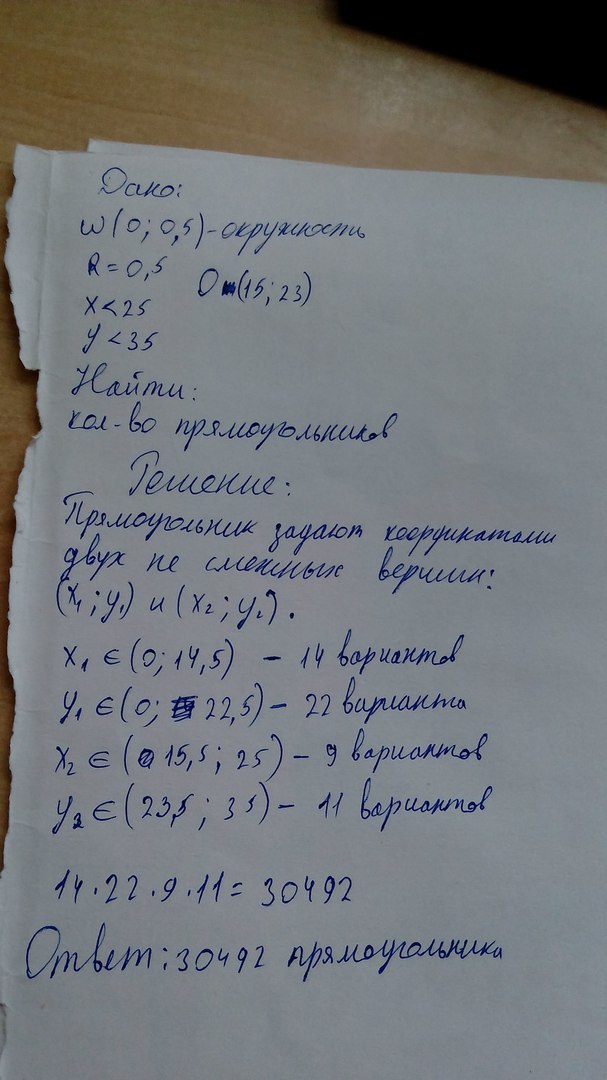 Дано:
ω(0; 0,5)-окружность
R=0,5
O (15; 23)
x<25
y<35
Найти:
кол-во прямоугольников
Решение:
Прямоугольник задают координатами
двух не смежных вершин:
(x₁; y₁) и (x₂; y₂).
x₁ ∈ (0; 14,5) - 14 вариантов
y₁ ∈ (0; 22,5) - 22 варианта
x₂ ∈ (15,5; 25) - 9 вариантов
y₂ ∈ (23,5; 35) - 11 вариантов
14·22·9·11 = 30492
Ответ: 30492 прямоугольника